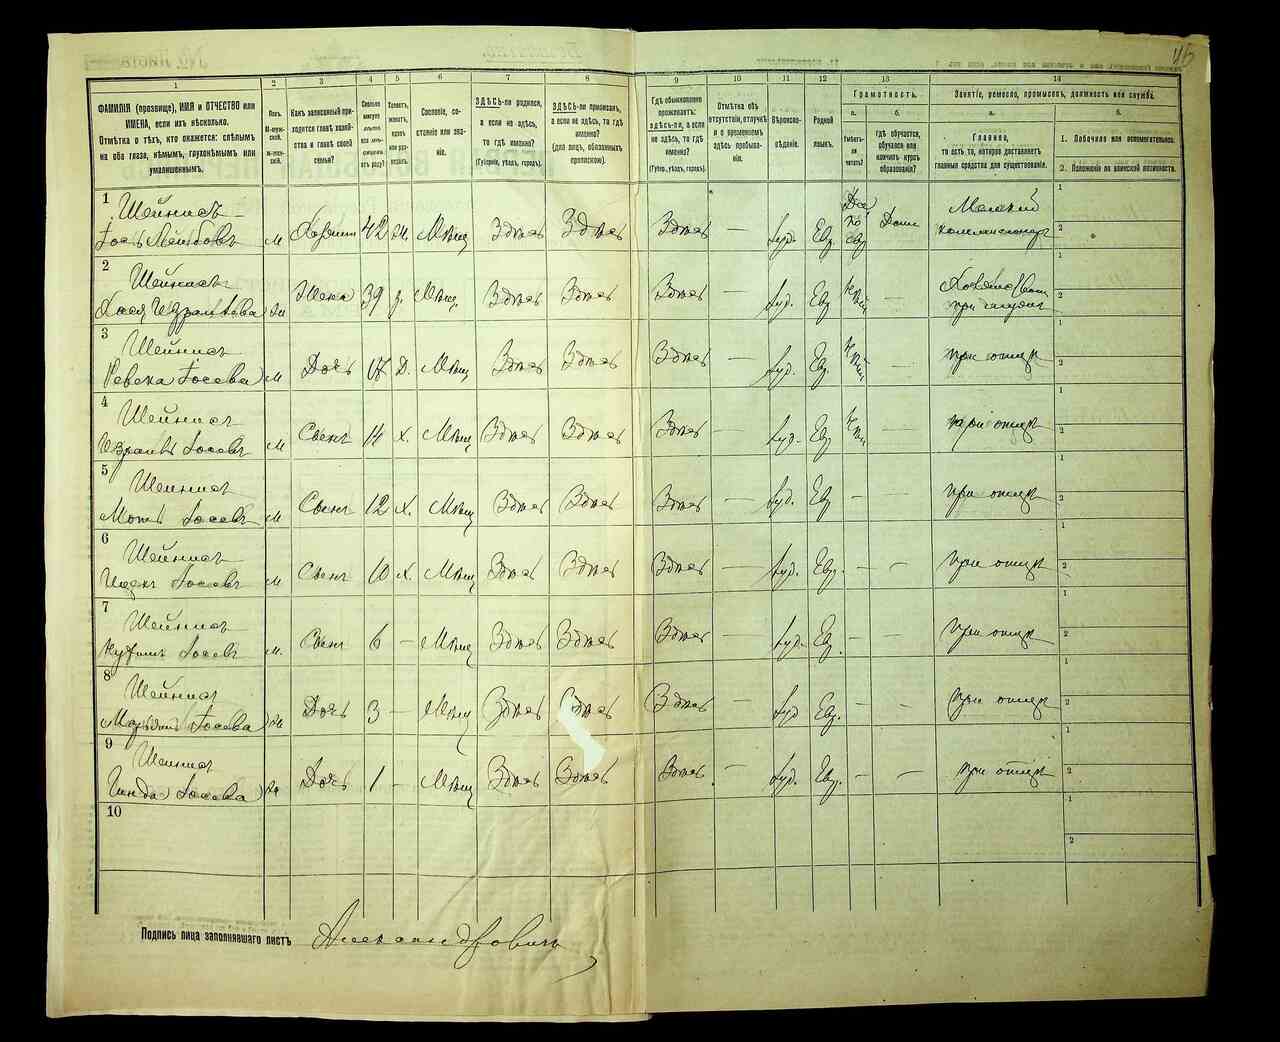 1
2
3
4
5
6
7
8
9
10
11
12
13
14
ФАМИЛІЯ (прозвище), ИМЯ и ОТЧЕСТВО или
ИМЕНА, если ихъ нѣсколько.
Отмѣтка о тѣхъ, кто окажется: слѣпымъ
на оба глаза, нѣмымъ, глухонѣмымъ или
умалишеннымъ.
Полъ.
М-мужской.
Ж-женскій.
Какъ записанный приходится главѣ хозяйства и главѣ своей семьи?
Сколько минуло лѣтъ или мѣсяцевъ отъ роду?
Холостъ, женатъ, вдовъ или разведенъ.
Сословіе, состояніе или званіе.
ЗДѢСЬ-ли родился,
а если не здѣсь,
то гдѣ именно?
(Губернія, уѣздъ, городъ).
ЗДѢСЬ-ли приписанъ,
а если не здѣсь, то гдѣ
именно?
(для лицъ, обязанныхъ
припиской).
Гдѣ обыкновенно
проживаетъ:
здѣсь-ли, а если
не здѣсь, то гдѣ
именно?
(Губер., уѣздъ, городъ).
Отмѣтка объ
отсутствіи, отлучкѣ
и о временномъ
здѣсь пребываніи.
Вѣроисповѣданіе.
Родной
языкъ.
Грамотность.
а.
Умѣетъ-ли читать?
б.
Гдѣ обучается,
обучался или
кончилъ курсъ
образованія?
Занятіе, ремесло, промыселъ, должность или служба.
а.
Главное,
то есть то, которое доставляетъ
главныя средства для существованія.
б.
1. Побочное или вспомогательное.
2. Положеніе по воинской повинности.
1 Шейнисъ
Іось Лейбовъ м Хозяинъ 42 ж. Мѣщ Здѣсь Здѣсь Здѣсь — Іуд. Евр. Да по евр Дома Мелкій коммисіонеръ 1 2
2 Шейнисъ
Хася Израилева ж Жена 39 з. Мѣщ. Здѣсь Здѣсь Здѣсь — Іуд. Евр — при мужѣ 1 2
3 Шейнисъ
Ревека Іосева Дочь 17 д. Мѣщ Здѣсь Здѣсь Здѣсь — Іуд. Евр. — при отцѣ 1 2
4 Шейнисъ
Израиль Іосевъ м Сынъ 14 х. Мѣщ Здѣсь Здѣсь Здѣсь — Іуд. Евр — при отцѣ 1 2
5 Шейнисъ
Іосевъ м Сынъ 12 х. Мѣщ Здѣсь Здѣсь Здѣсь — Іуд. Евр — — при отцѣ 1 2
6 Шейнисъ
Ицекъ Іосевъ м Сынъ 10 х. Мѣщ Здѣсь Здѣсь Здѣсь — Іуд. Евр. — — при отцѣ 1 2
7 Шейнисъ
Іосевъ м. Сынъ 6 — Мѣщ Здѣсь Здѣсь Здѣсь — Іуд. Евр. — — при отцѣ 1 2
8 Шейнисъ
Іосева ж Дочь 3 — Мѣщ Здѣсь Здѣсь Здѣсь — Іуд Евр. — — при отцѣ 1 2
9 Шейнисъ
Іосева ж Дочь 1 — Мѣщ Здѣсь Здѣсь Здѣсь — Іуд. Евр. — — при отцѣ 1 2
10 1 2
Подпись лица заполнявшаго листъ Александровичъ